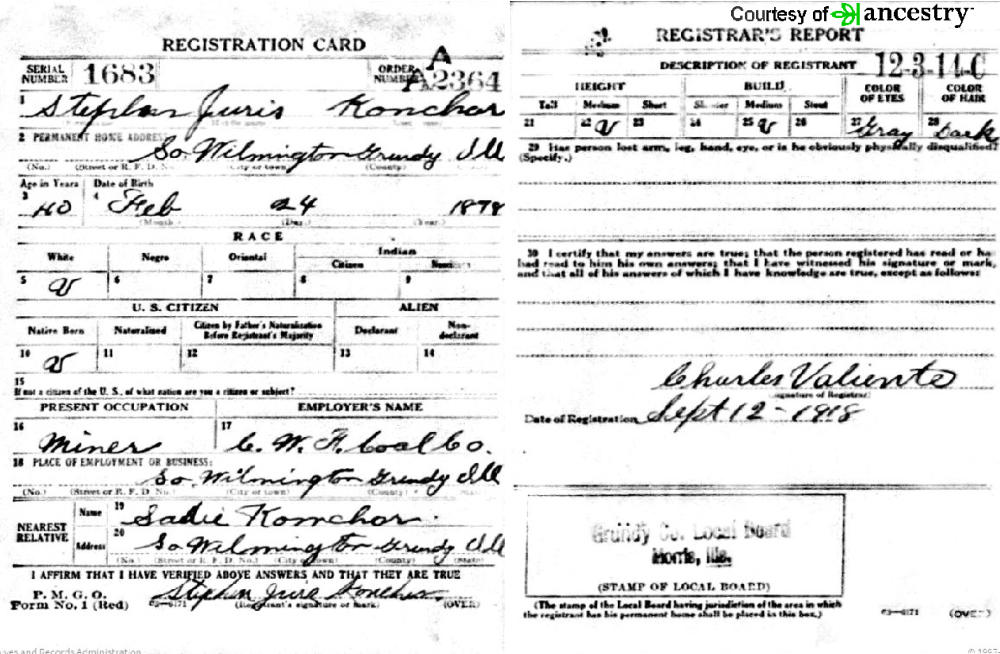 Courtesy of ancestry
REGISTRATION CARD
SERIAL NUMBER 1683 ORDER NUMBER A A2364
1 Stephen Juris Konchar
2 PERMANENT HOME ADDRESS:
So. Wilmington Grundy Ill
(No.) (Street or R. F. D. No.) (City or town) (County)
Age in Years Date of Birth
3 40 4 Feb 24 1878
(Month.) (Day.) (Year.)
RACE
White Negro Oriental Indian
Citizen
5 6 7 8 9
U. S. CITIZEN ALIEN
Native Born Naturalized Citizen by Father's Naturalization Before Registrant's Majority Declarant Non-declarant
10 11 12 13 14
15
If not a citizen of the U. S., of what nation are you a citizen or subject?
PRESENT OCCUPATION EMPLOYER'S NAME
16 Miner 17 C. W. F. Coal Co.
18 PLACE OF EMPLOYMENT OR BUSINESS:
So. Wilmington Grundy Ill
(No.) (Street or R. F. D. No.) (City or town) (County)
NEAREST RELATIVE Name 19 Sadie Konchar
Address 20 So Wilmington Grundy Ill
(No.) (Street or R. F. D. No.) (City or town) (County) (State)
I AFFIRM THAT I HAVE VERIFIED ABOVE ANSWERS AND THAT THEY ARE TRUE
P. M. G. O.
Form No. 1 (Red) 03—6171 Stephen Juris Konchar (Registrant's signature or mark) (OVER)
REGISTRAR'S REPORT
12-3-14-C
DESCRIPTION OF REGISTRANT
HEIGHT BUILD COLOR OF EYES COLOR OF HAIR
Tall Medium Short Slender Medium Stout
21 22 23 24 25 26 27 Gray 28 Dark
29 Has person lost arm, leg, hand, eye, or is he obviously physically disqualified?
(Specify.)
30 I certify that my answers are true; that the person registered has read or has
had read to him his own answers; that I have witnessed his signature or mark,
and that all of his answers of which I have knowledge are true, except as follows:
Charles Valiente
(Signature of Registrar)
Date of Registration Sept 12 - 1918
Grundy Co. Local Board
Morris, Ills.
(STAMP OF LOCAL BOARD)
(The stamp of the Local Board having jurisdiction of the area in which
the registrant has his permanent home shall be placed in this box.)
03—6171 (OVER)
ives and Records Administration